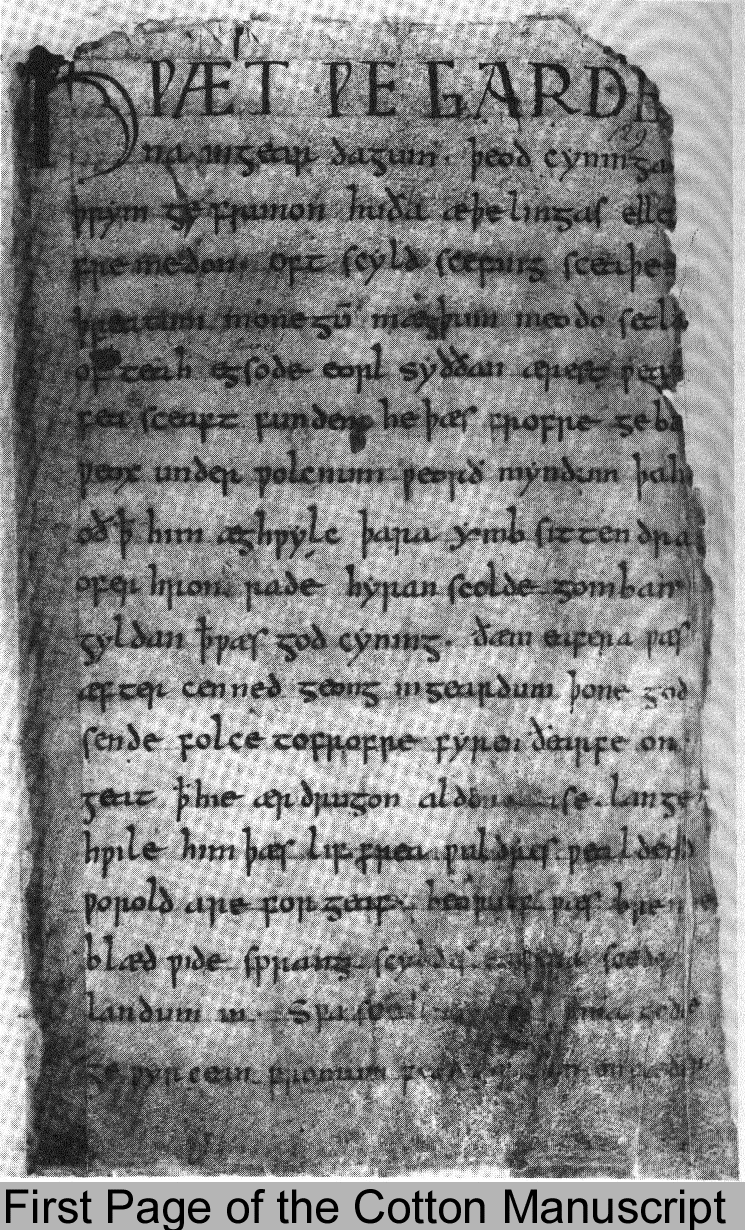 HǷÆT ǷE GARDE
na ingear dagum. þeod cyninga
þrym ge frunon huða æþelingas elle
fremedon. oft scyld scefing sceaþe
þreatum monegū mægþum meodo setla
of teah egsode eorl syððan ærest ƿear
fea sceaft funden he þæs frofre geba
ƿeox under ƿolcnum ƿeorð myndum þah
oð ꝥ him æghƿylc þara ymb sittendra
ofer hron rade hyran scolde gomban
gyldan ꝥ ƿæs god cyning. ðæm eafera ƿæs
æfter cenned geong in geardum þone god
sende folce tofrofre fyren ðearfe on
geat ꝥ hie ær drugon aldor se. lange
hƿile him þæs lif frea ƿuldres ƿealdend
ƿorold are for geaf. beoƿulf ƿæs breme
blæd ƿide sprang scyldes eafera scede
landum in. Sƿa guma gode
ge ƿyrcean fromum
First Page of the Cotton Manuscript